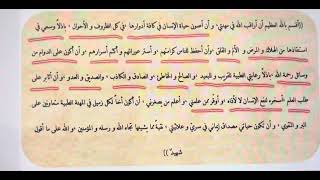 ((أقسم بالله العظيم أن أراقب الله في مهنتي، و أن أصون حياة الإنسان في كافة أدوارها في كل الظروف و الأحوال، باذلاً وسعي في
استنقاذها من الهلاك و المرض و الألم و القلق، وأن أحفظ للناس كرامتهم و أستر عوراتهم و أكتم أسرارهم، و أن أكون على الدوام من
وسائل رحمة الله، باذلاً رعايتي الطبية للقريب و البعيد و الصالح و الخاطئ، و الصادق و الكاذب، والصديق و العدو، و أن أثابر على
طلب العلم أسخره لنفع الإنسان لا لأذاه، و أوقر من علمني و أعلم من يصغرني، و أن أكون أخاً لكل زميل في المهنة الطبية متعاونين على
البر و التقوى، و أن تكون حياتي مصداق إيماني في سري و علانيتي، نقيةً مما يشينها تجاه الله و رسله و المؤمنين، و الله على ما أقول
شهيد))